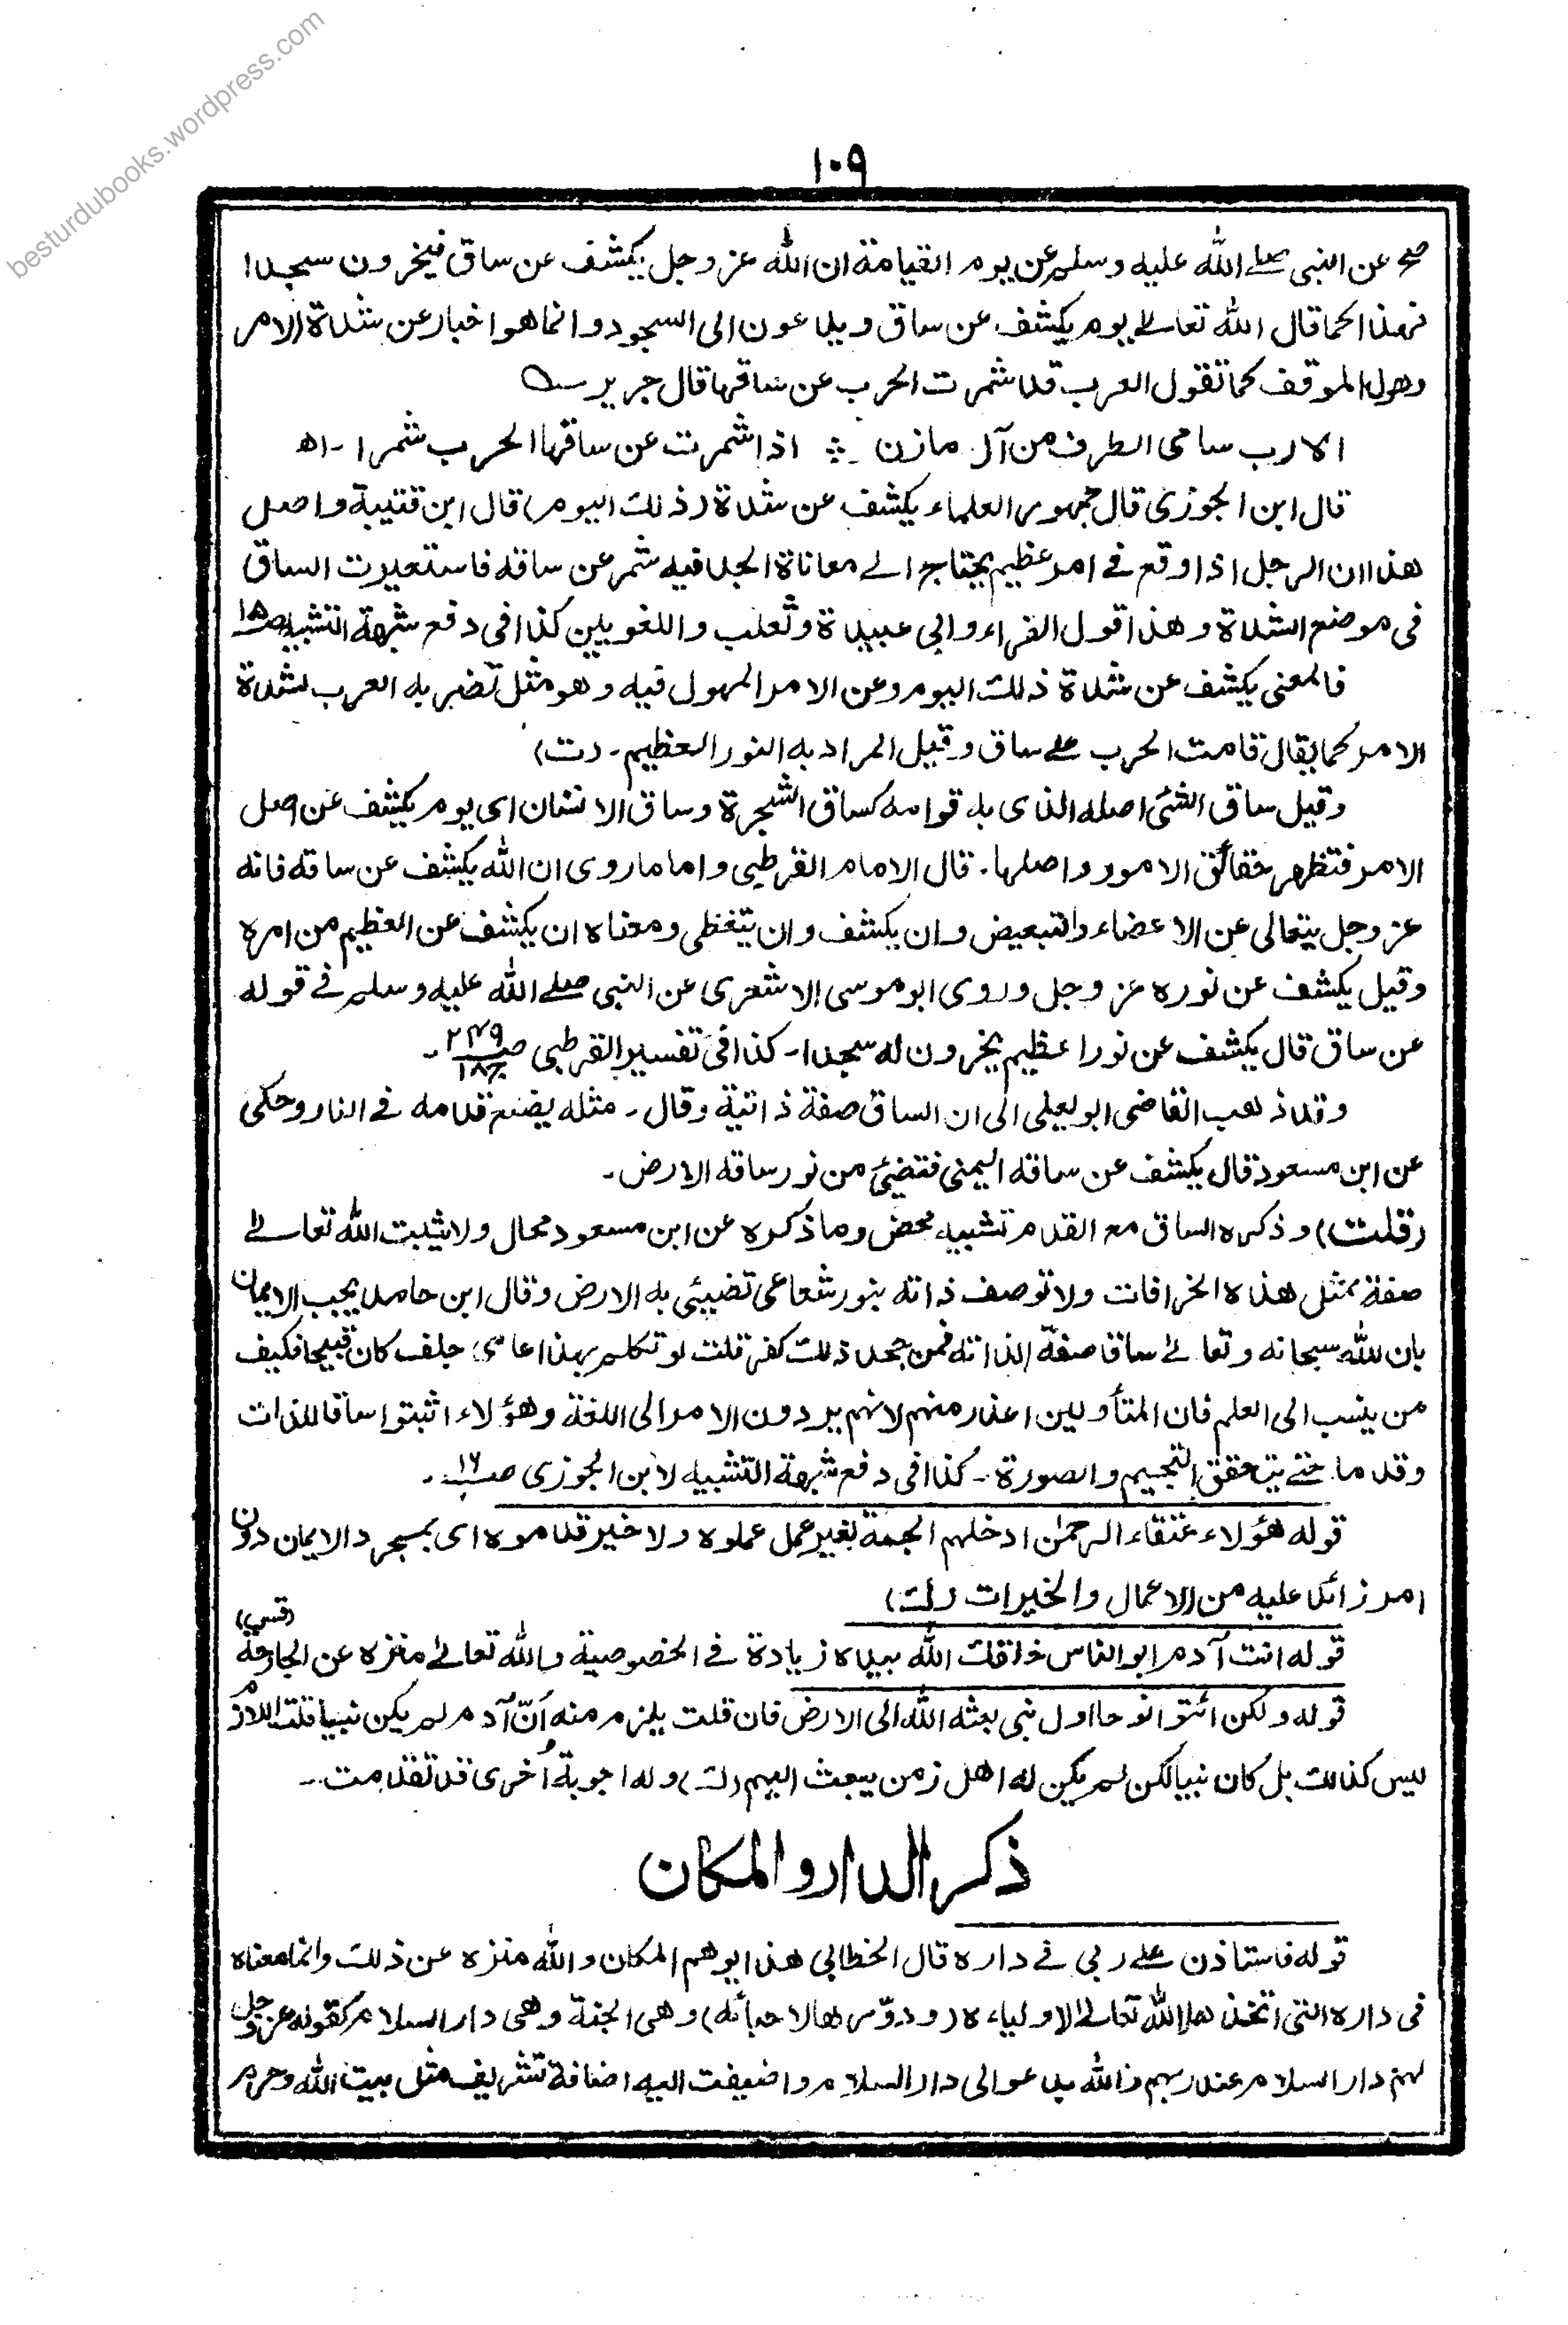 besturdubooks.wordpress.com
١٠٩
صح عن النبى صلے الله عليه وسلم عن يوم القيامة ان الله عز وجل يكشف عن ساق فيخرون سجدا
فهذا كما قال الله تعالے يوم يكشف عن ساق ويدعون الى السجود وانما هو اخبار عن شدة الامر
وهول الموقف كما تقول العرب قد شمرت الحرب عن ساقها قال جرير
الا رب سامى الطرف من آل مازن ؞ اذا شمرت عن ساقها الحرب شمرا - اھ
قال ابن الجوزى قال جمهور العلماء يكشف عن شدة (ذلك اليوم) قال ابن قتيبة واصل
هذا ان الرجل اذا وقع فے امر عظيم يحتاج الے معاناة الجد فيه شمر عن ساقه فاستعيرت الساق
فى موضع الشدة وهذا قول الفراء وابى عبيدة وثعلب واللغويين كذا فى دفع شبهة التشبيه صـ١٥
فالمعنى يكشف عن شدة ذلك اليوم وعن الامر المهول فيه وهو مثل تضربه العرب لشدة
الامر كما يقال قامت الحرب علے ساق وقيل المراد به النور العظيم - (ت)
وقيل ساق الشئ اصله الذى به قوامه كساق الشجرة وساق الانسان اى يوم يكشف عن اصل
الامر فتظهر حقائق الامور واصلها. قال الامام القرطبى واما ما روى ان الله يكشف عن ساقه فانه
عز وجل يتعالى عن الاعضاء والتبعيض وان يكشف وان يتغطى ومعناه ان يكشف عن العظيم من امره
وقيل يكشف عن نوره عز وجل وروى ابو موسى الاشعرى عن النبى صلے الله عليه وسلم فے قوله
عن ساق قال يكشف عن نورا عظيم يخرون له سجدا - كذا فى تفسير القرطبى صـ٢٤٩ ج١٨ -
وقد ذهب القاضى ابو يعلى الى ان الساق صفة ذاتية وقال - مثله يضع قدمه فے النار وحكى
عن ابن مسعود قال يكشف عن ساقه اليمنى فتضئ من نور ساقه الارض -
(قلت) وذكره الساق مع القدم تشبيه محض وما ذكره عن ابن مسعود محال ولا يثبت الله تعالے
صفة بمثل هذه الخرافات ولا توصف ذاته بنور شعاعى تضيئى به الارض وقال ابن حامد يجب الايمان
بان لله سبحانه وتعالے ساقا صفة لذاته فمن جحد ذلك كفر قلت لو تكلم بهذا عامى جلف كان قبيحا فكيف
من ينسب الى العلم فان المتأولين اعذر منهم لانهم يردون الامر الى اللغة وهؤلاء اثبتوا ساقا للذات
وقدما حتے يتحقق التجسيم والصورة - كذا فى دفع شبهة التشبيه لابن الجوزى صـ١٦ -
قوله هؤلاء عتقاء الرحمن ادخلهم الجنة بغير عمل عملوه ولا خير قدموه اى بمجرد الايمان دون
امر زائد عليه من الاعمال والخيرات (ك)
قوله انت آدم ابو الناس خلقك الله بيده زيادة فے الخصوصية والله تعالے منزه عن الجارحة (قس)
قوله ولكن ائتوا نوحا اول نبى بعثه الله الى الارض فان قلت يلزم منه انّ آدم لم يكن نبيا قلت اللازم
ليس كذلك بل كان نبيا لكن لم يكن له اهل زمن يبعث اليهم (ك) وله اجوبة اُخرى قد تقدمت -
ذكر الدار والمكان
قوله فاستاذن علے ربى فے داره قال الخطابى هذا يوهم المكان والله منزه عن ذلك وانما معناه
فى داره التى اتخذها الله تعالے لاولياءه (ودوّرها لاحبائه) وهى الجنة وهى دار السلام كقوله عز وجل
لهم دار السلام عند ربهم والله يدعو الى دار السلام واضيفت اليه اضافة تشريف مثل بيت الله وحرم